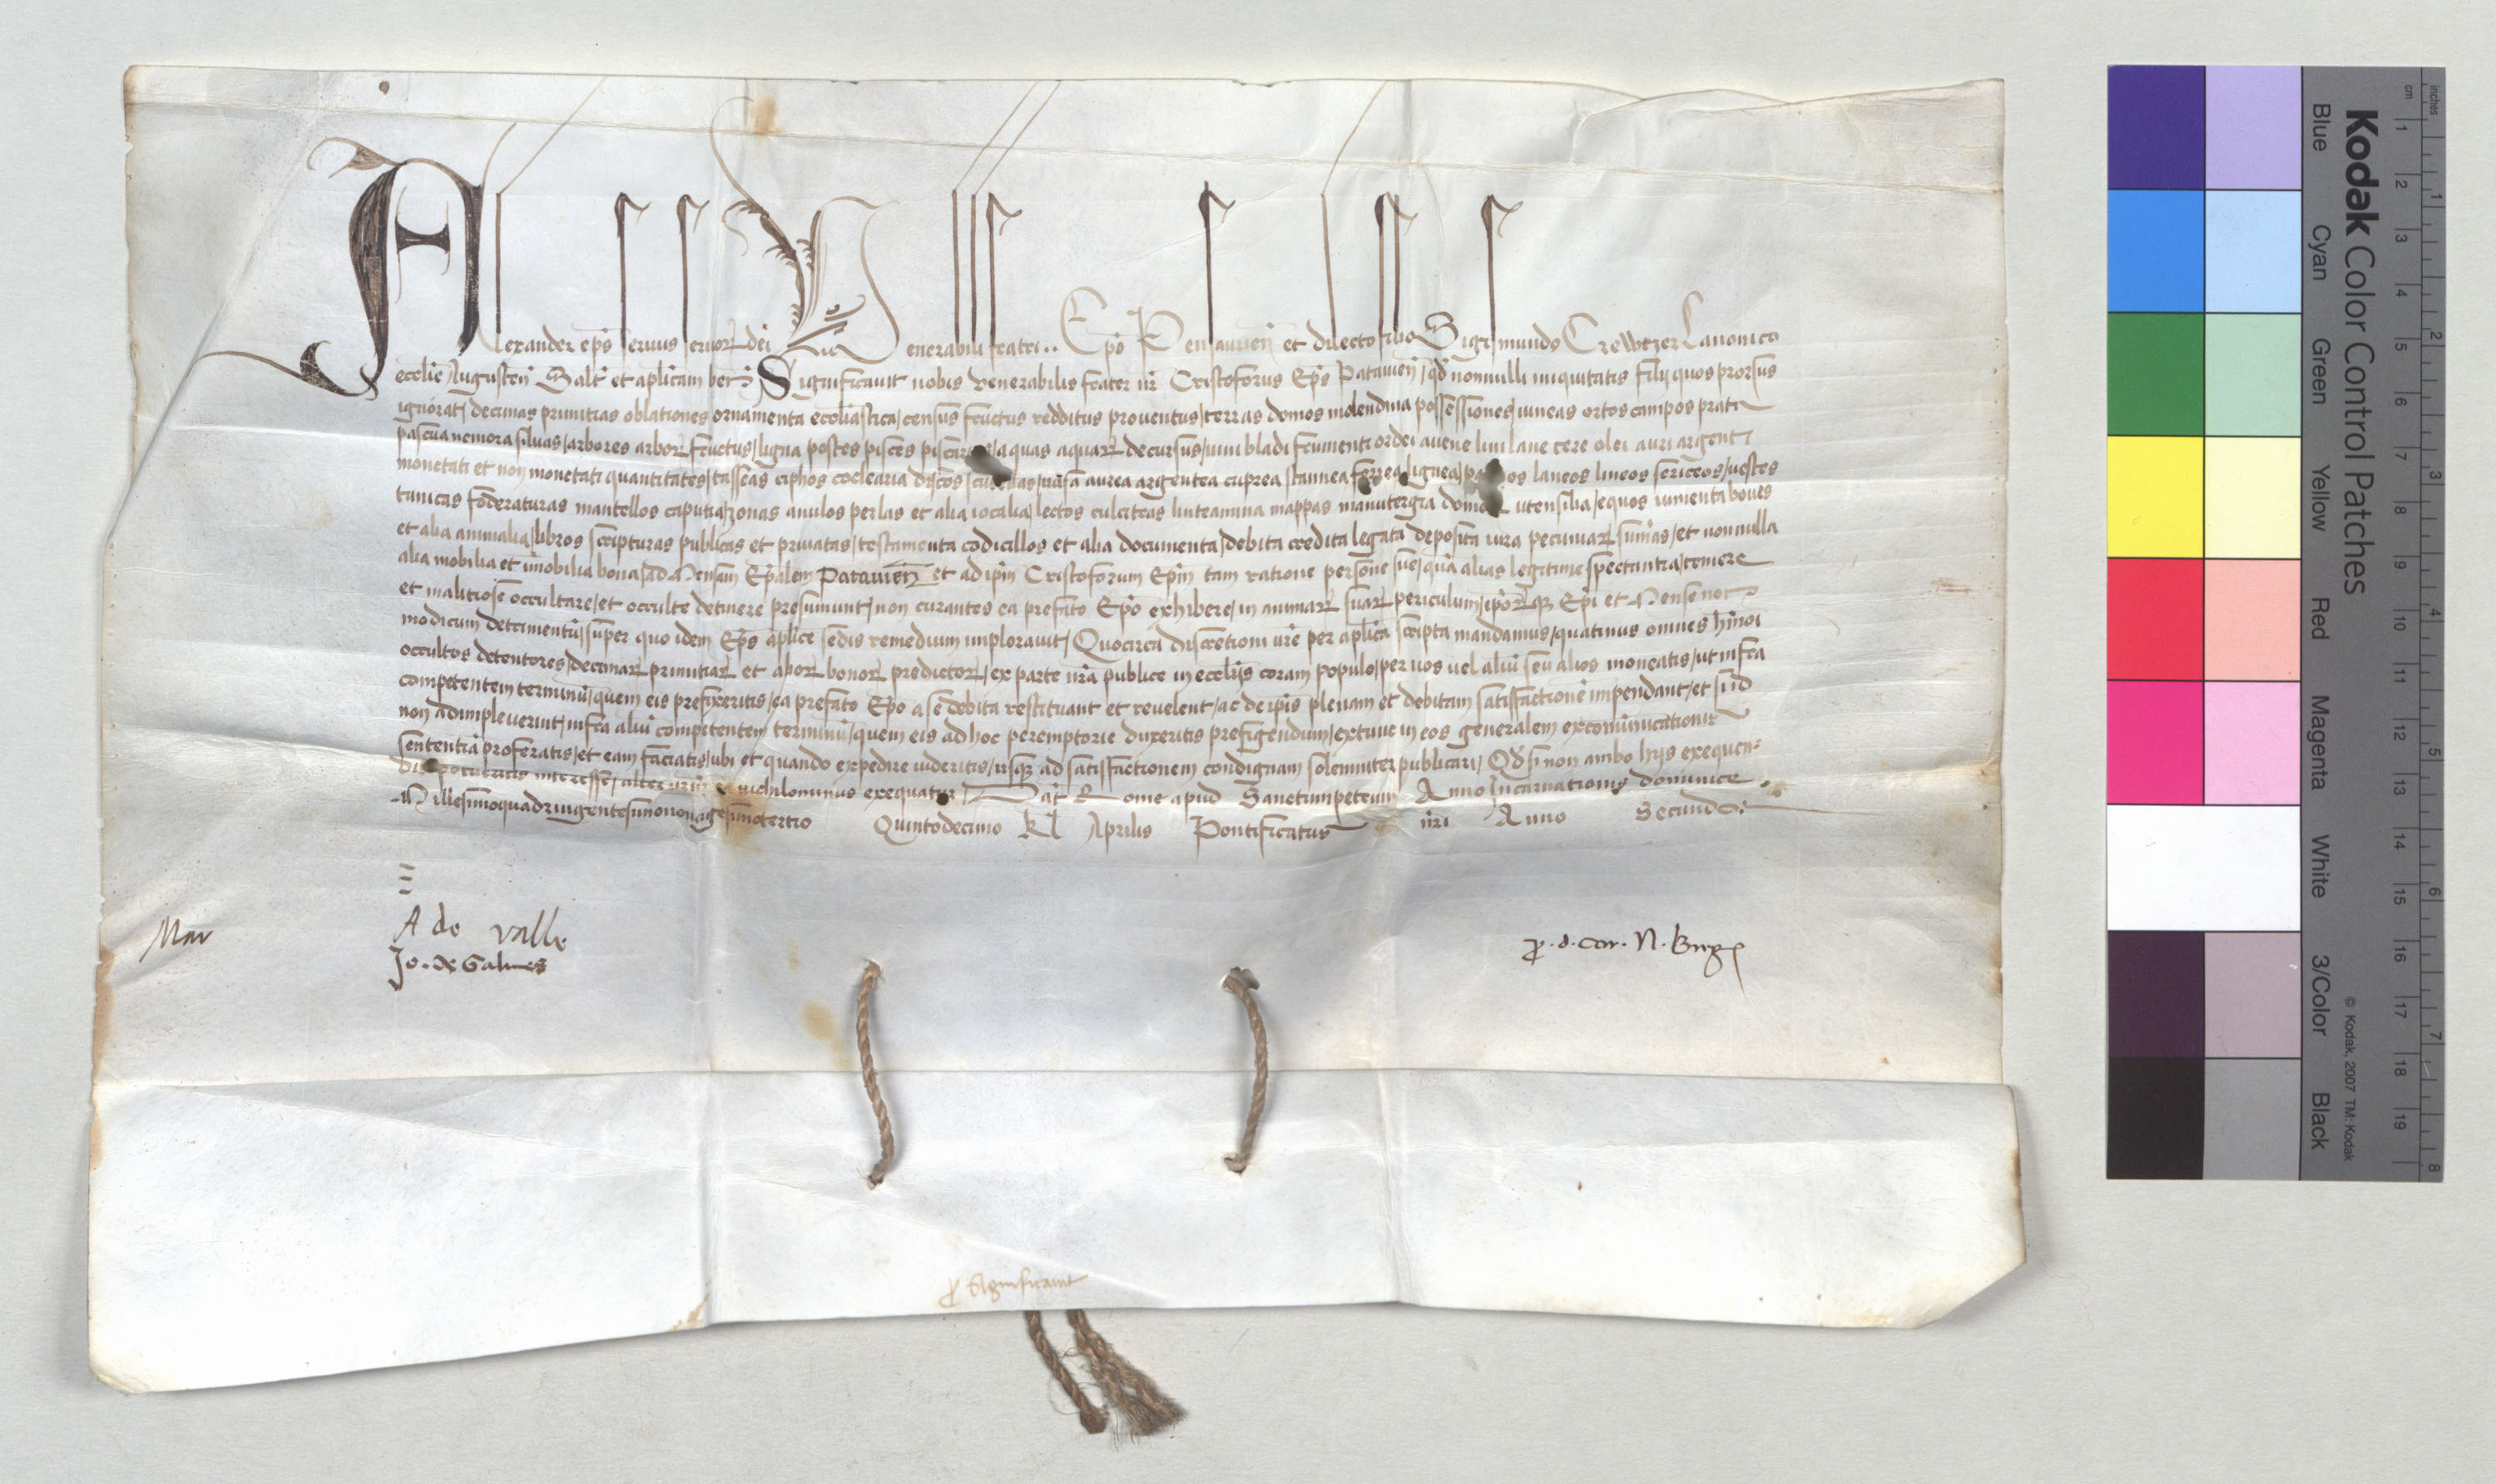 Alexander ep̄s seruus seruoꝝ dei Venerabili fratri .. Ep̄o Pensaurien̄ et dilecto filio Sigismundo Crewtzer Canonico
eccl̄ie Augusten̄ Salt̄ et apl̄icam ben̄ Significauit nobis venerabilis frater nr̄ Cristoforus Ep̄s Patauien̄/ qd̄ nonnulli iniquitatis filij quos prorsus
ignorat/ decimas primitias oblationes ornamenta eccl̄iastica/ census fructus redditus prouentus/ terras domos molendina possessiones/ uineas ortos campos prata
pascua nemora siluas/ arbores arboꝝ fructus/ ligna postes pisces /aquas aquaꝝ decursus/ uini bladi frumenti ordei auene lini lane cere olei auri argenti
monetati et non monetati quantitates/ tasseas ciphos coclearia discos /uasa aurea argentea cuprea stannea ferrea lignea/ laneos lineos sericeos/ uestes
tunicas foderaturas mantellos caputia/ zonas anulos perlas et alia iocalia/ lectos culcitras linteamina mappas manutergia utensilia/ equos iumenta boues
et alia animalia/ libros scripturas publicas et priuatas/ testamenta codicillos et alia documenta/ debita credita legata deposita iura pecuniaꝝ sum̄as/ et nonnulla
alia mobilia et im̄obilia bona/ ad Mensam Ep̄alem Patauien̄ et ad ip̄m Cristoforum Ep̄m tam ratione persone sue/ quā alias legitime spectantia/ temere
et malitiose occultare/ et occulte detinere presumunt/ non curantes ea prefato Ep̄o exhibere/ in animaꝝ suaꝝ periculum/ ip̄oꝝqꝫ Ep̄i et Mense non
modicum detrimentū/ super quo idem Ep̄s apl̄ice sedis remedium implorauit/ Quocirca discretioni ur̄e per apl̄ica scripta mandamus/ quatinus omnes hm̄oi
occultos detentores/ decimaꝝ primitiaꝝ et alioꝝ bonoꝝ predictoꝝ/ ex parte nr̄a publice in eccl̄ijs coram populo/ per uos uel aliū seu alios moneatis/ ut infra
competentem terminū/ quem eis prefixeritis/ ea prefato Ep̄o a se debita restituant et reuelent/ ac de ip̄is plenam et debitam satisfactionē impendant/ et si id
non adimpleuerint/ infra aliū competentem terminū/ quem eis ad hoc peremptorie duxeritis prefigendum/ extunc in eos generalem excom̄unicationis
sententiā proferatis/ et eam faciatis/ ubi et quando expedire uideritis/ usqꝫ ad satisfactionem condignam solemniter publicari/ Qd̄ si non ambo hijs exequen-
dis potueritis interesse/ alter ur̄m̄ ea nichilominus exequatur/ Dat̄ Rome apud Sanctumpetrum Anno Incarnationis dominice
Millesimoquadringentesimononagesimotertio Quintodecimo kl̄ Aprilis Pontificatus nr̄i Anno Secundo:
A de valle
Jo. de Galues
Mar
p̱. d. car. N. Brug
p̱ Significauit
Kodak Color Control Patches
Blue
Cyan
Green
Yellow
Red
Magenta
White
3/Color
Black
© Kodak, 2007 TM: Kodak
cm 1 2 3 4 5 6 7 8 9 10 11 12 13 14 15 16 17 18 19
inches 1 2 3 4 5 6 7 8